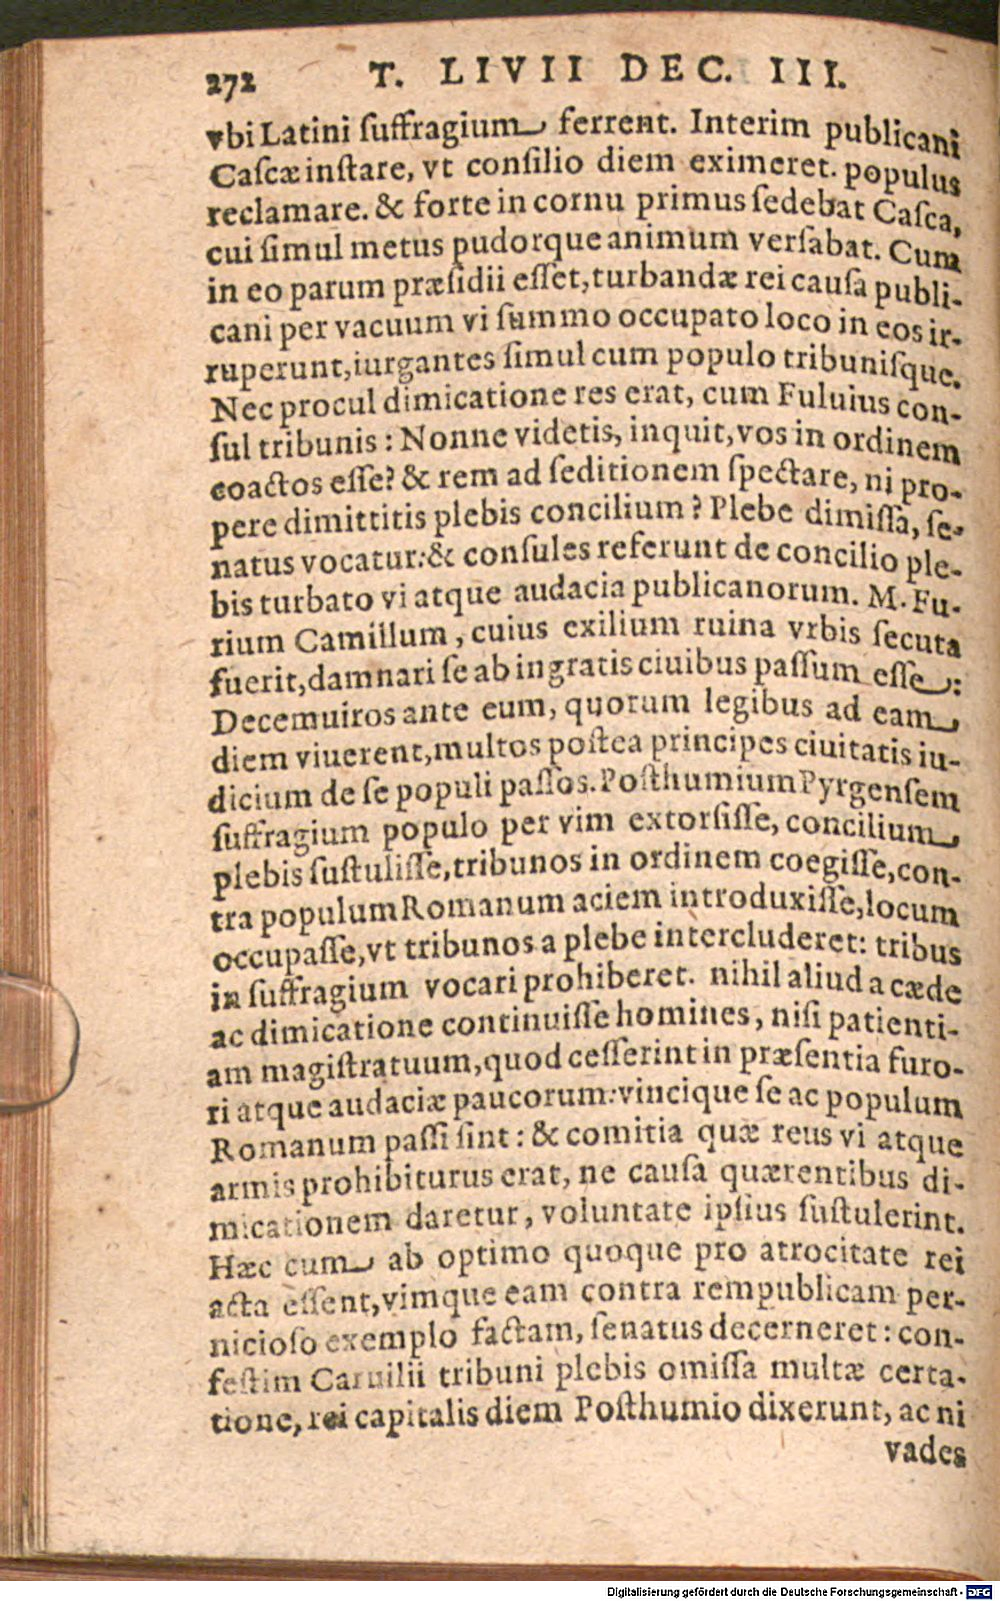 272 T. LIVII DEC. III.
vbi Latini ſuffragium ferrent. Interim publicani
Caſcæ inſtare, vt conſilio diem eximeret. populus
reclamare. & forte in cornu primus ſedebat Caſca,
cui ſimul metus pudorque animum verſabat. Cum
in eo parum præſidii eſſet, turbandæ rei cauſa publi-
cani per vacuum vi ſummo occupato loco in eos ir-
ruperunt, iurgantes ſimul cum populo tribuniſque.
Nec procul dimicatione res erat, cum Fuluius con-
ſul tribunis: Nonne videtis, inquit, vos in ordinem
coactos eſſe? & rem ad ſeditionem ſpectare, ni pro-
pere dimittitis plebis concilium? Plebe dimiſſa, ſe-
natus vocatur: & conſules referunt de concilio ple-
bis turbato vi atque audacia publicanorum. M. Fu-
rium Camillum, cuius exilium ruina vrbis ſecuta
fuerit, damnari ſe ab ingratis ciuibus paſſum eſſe:
Decemuiros ante eum, quorum legibus ad eam
diem viuerent, multos poſtea principes ciuitatis iu-
dicium de ſe populi paſſos. Poſthumium Pyrgenſem
ſuffragium populo per vim extorſiſſe, concilium
plebis ſuſtuliſſe, tribunos in ordinem coegiſſe, con-
tra populum Romanum aciem introduxiſſe, locum
occupaſſe, vt tribunos a plebe intercluderet: tribus
in ſuffragium vocari prohiberet. nihil aliud a cæde
ac dimicatione continuiſſe homines, niſi patienti-
am magiſtratuum, quod ceſſerint in præſentia furo-
ri atque audaciæ paucorum: vincique ſe ac populum
Romanum paſſi ſint: & comitia quæ reus vi atque
armis prohibiturus erat, ne cauſa quærentibus di-
micationem daretur, voluntate ipſius ſuſtulerint.
Hæc cum ab optimo quoque pro atrocitate rei
acta eſſent, vimque eam contra rempublicam per-
nicioſo exemplo factam, ſenatus decerneret: con-
feſtim Caruilii tribuni plebis omiſſa multæ certa-
tione, rei capitalis diem Poſthumio dixerunt, ac ni
vades
Digitalisierung gefördert durch die Deutsche Forschungsgemeinschaft - DFG